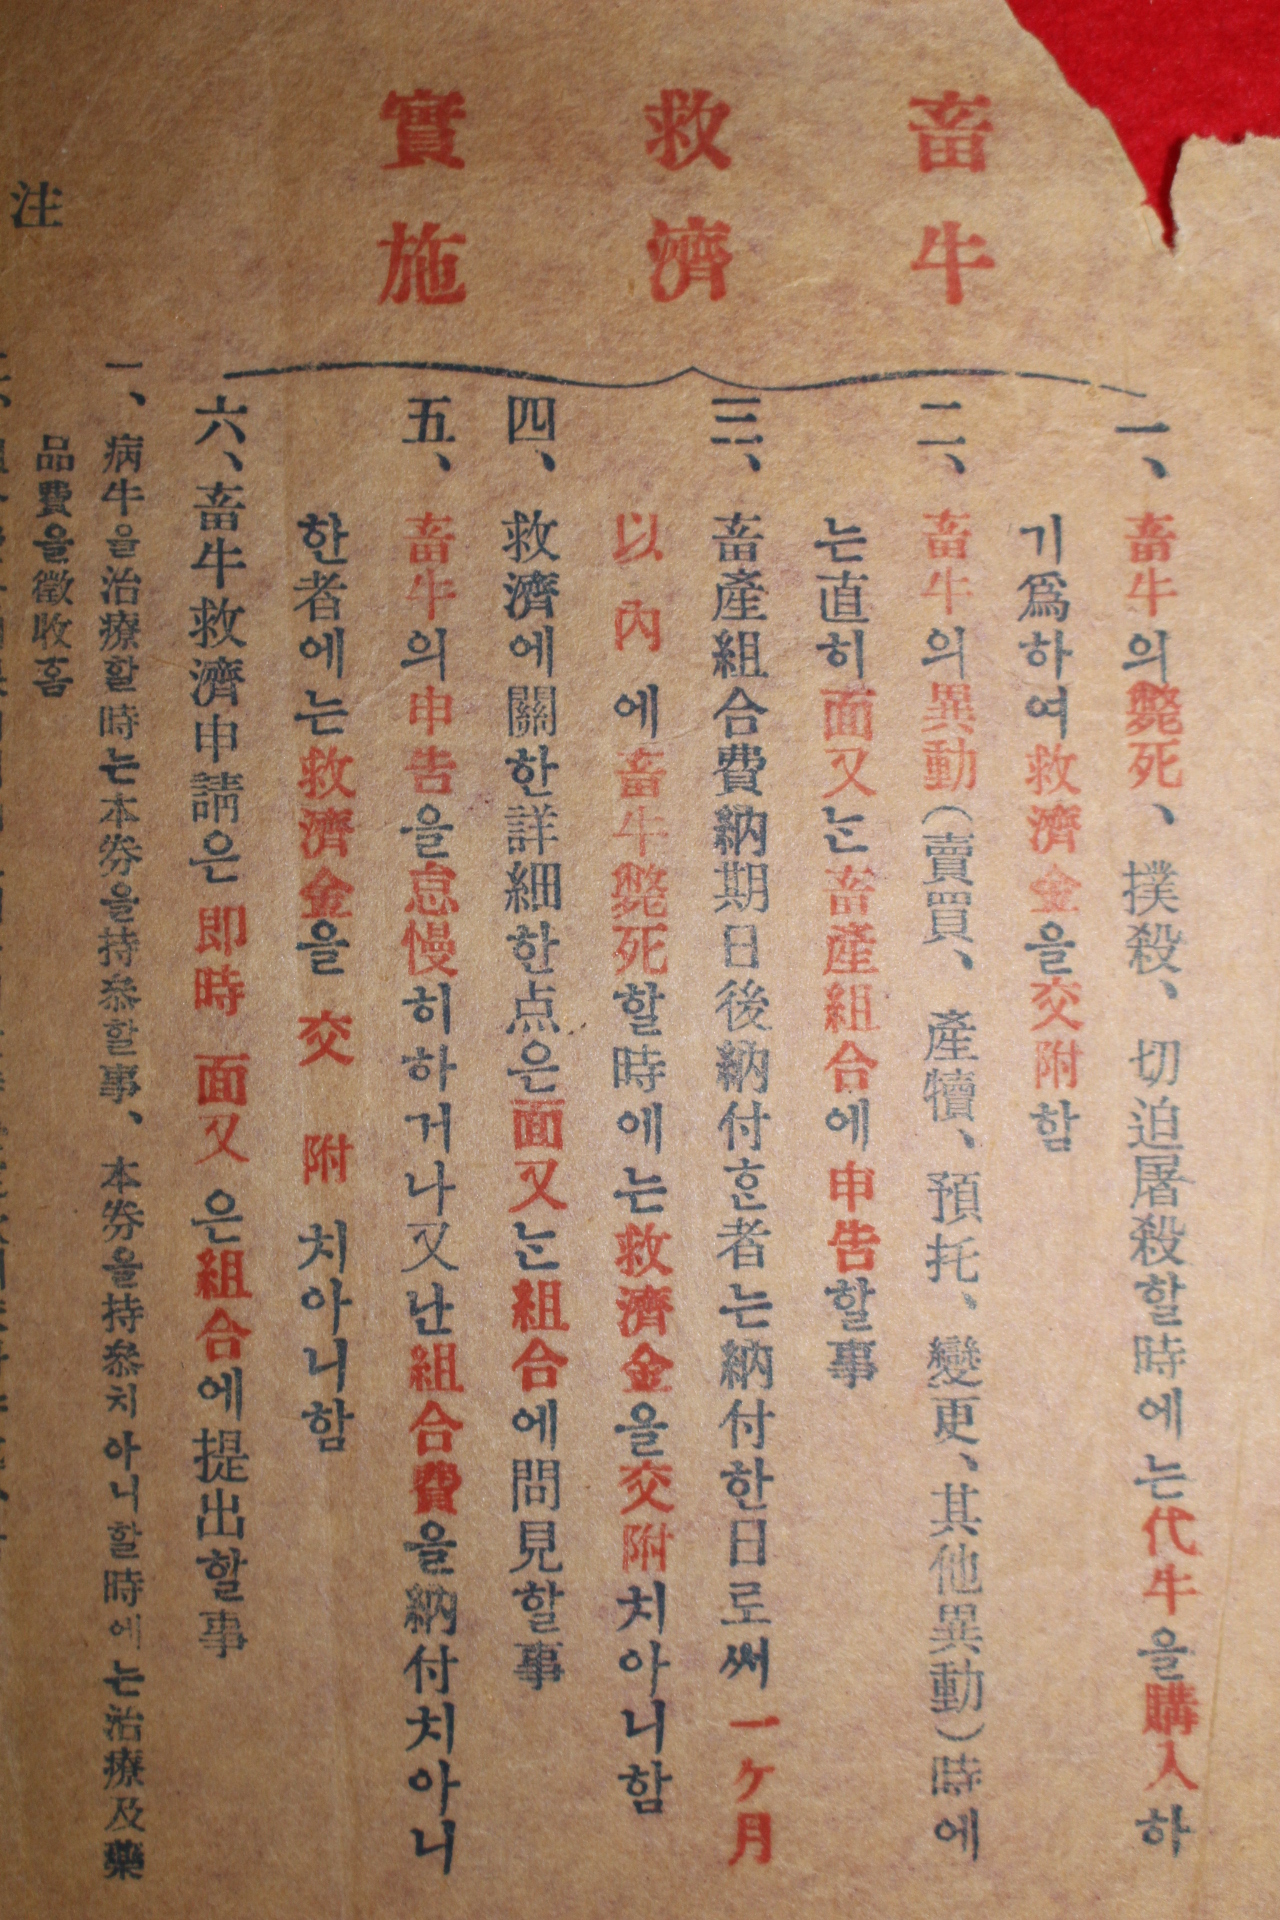 畜牛
救濟
實施
一、畜牛의斃死、撲殺、切迫屠殺할時에는代牛을購入하
기爲하여救濟金을交附함
二、畜牛의異動(賣買、產犢、預托、變更、其他異動)時에
는直히面又는畜產組合에申告할事
三、畜產組合費納期日後納付한者는納付한日로써一ケ月
以內에畜牛斃死할時에는救濟金을交附치아니함
四、救濟에關한詳細한点은面又는組合에問見할事
五、畜牛의申告을怠慢히하거나又난組合費을納付치아니
한者에는救濟金을交附치아니함
六、畜牛救濟申請은即時面又은組合에提出할事
注
一、病牛을治療할時는本券을持參할事、本券을持參치아니할時에는治療及藥
品費을徵收홈